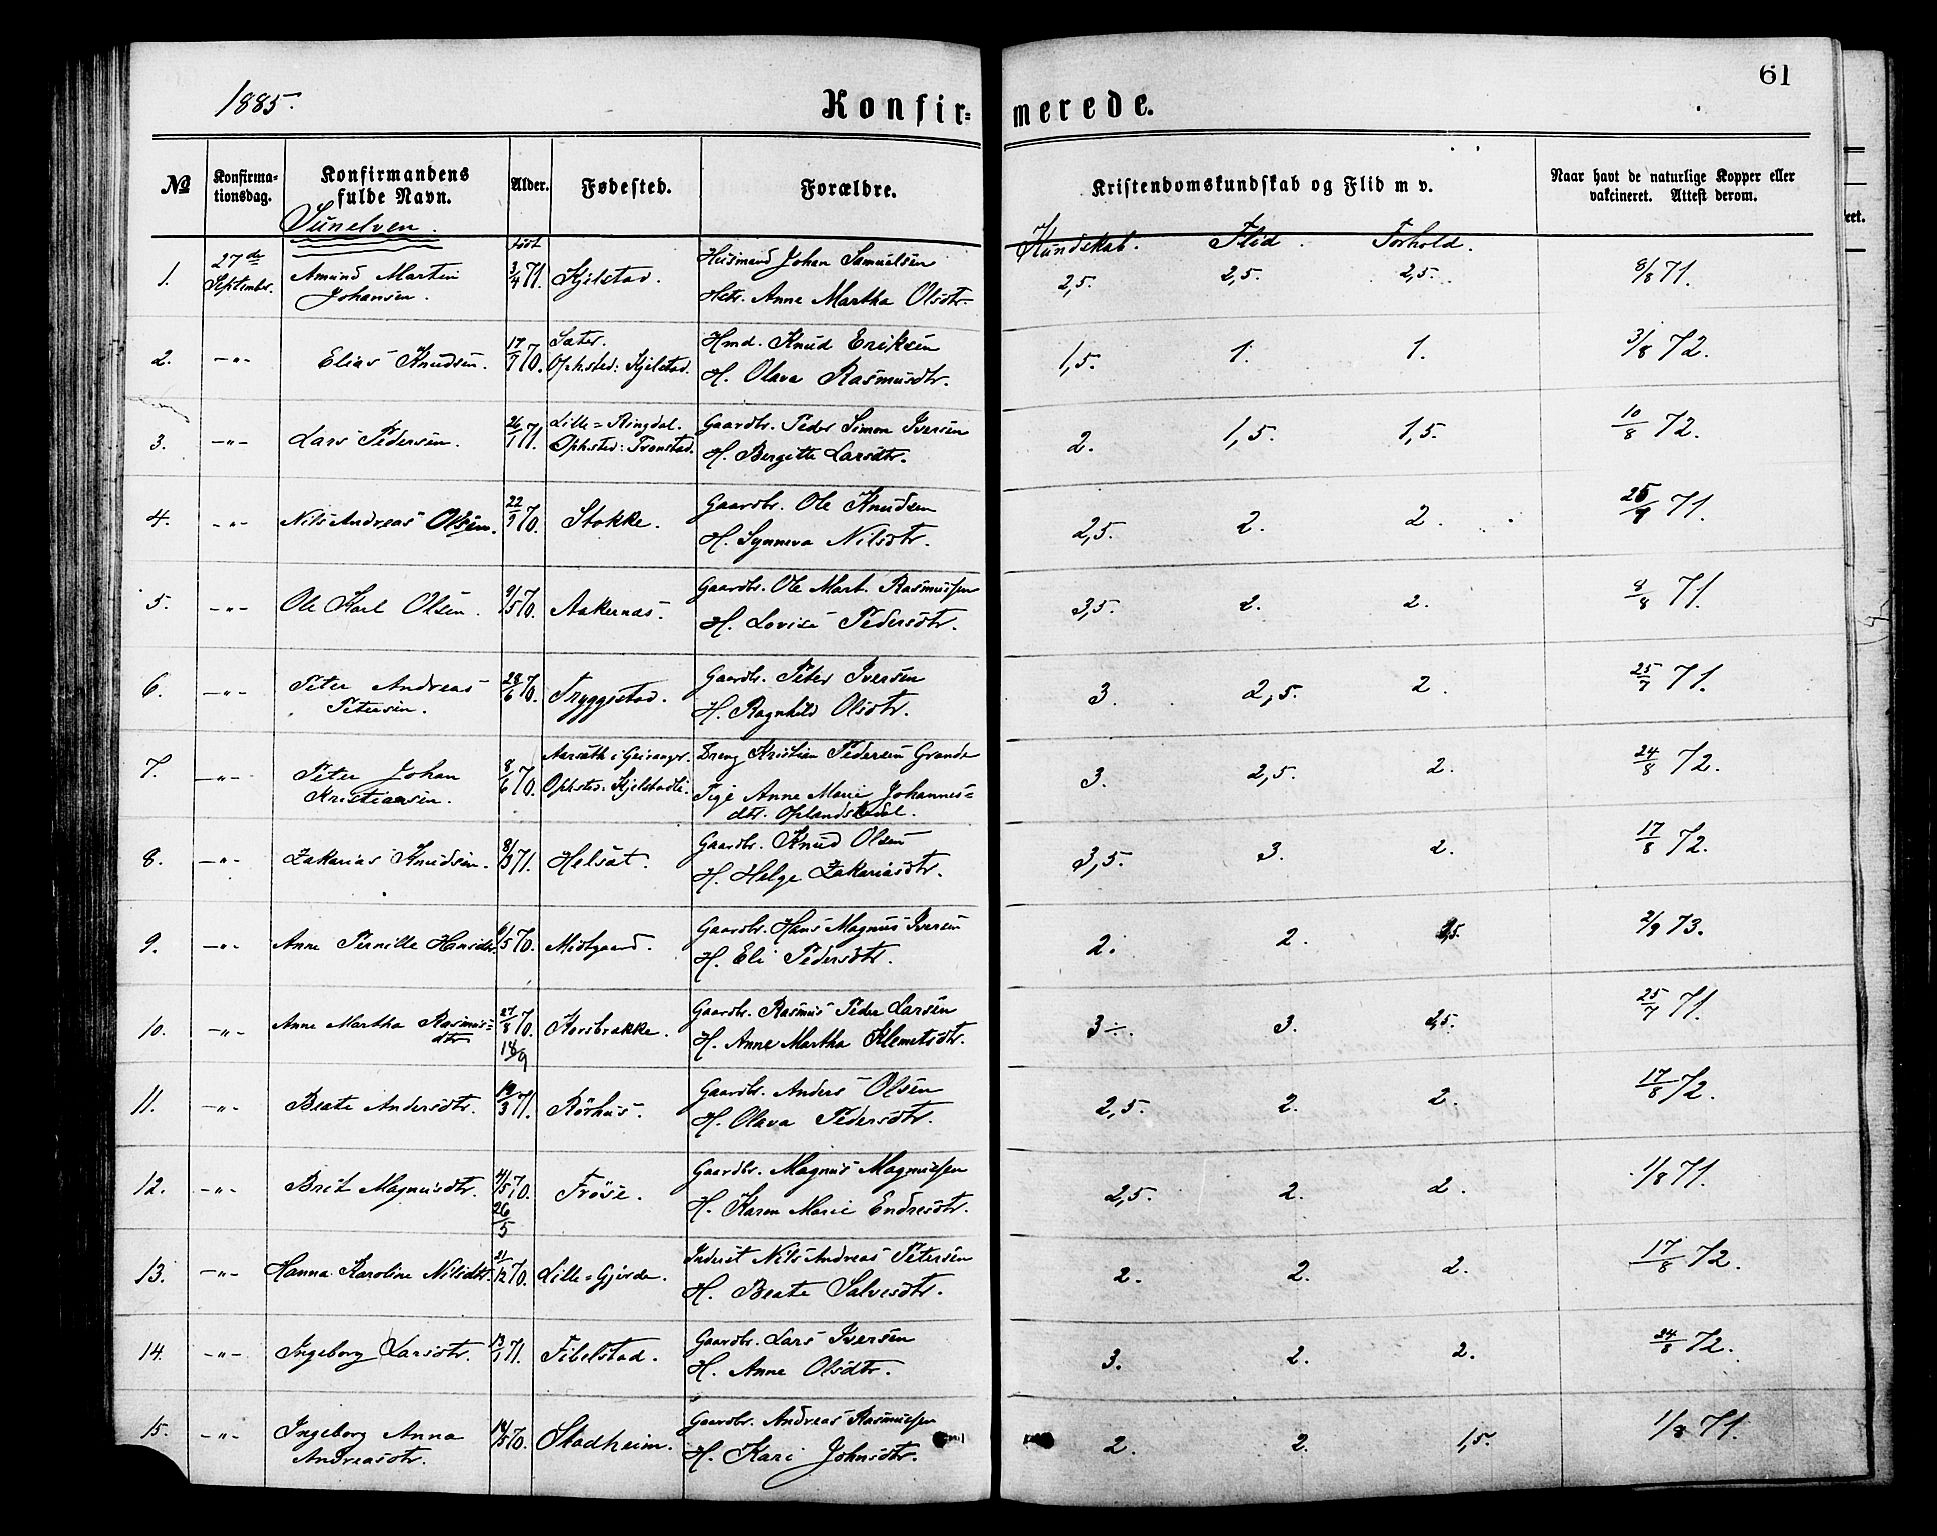 1885.
Konfir=
merede.
61
No
Konfirma-
tionsdag.
Konfirmandens
fulde Navn.
Alder.
Fødested.
Forældre.
Kristendomskundskab og Flid m v.
Naar havt de naturlige Kopper eller
vakcineret. Attest derom.
Sunelven.
Kundskab. Flid. Forhold.
1. 27de September. Amund Martin Johansen. 3/4 71. Kjelstad. Husmand Johan Samuelsen
Hstr. Anne Martha Olsdtr. 2,5. 2,5. 2,5. 8/8 71.
2. -"- Elias Knudsen. 17/9 70. Sæter. Hmd. Knud Eriksen
Oph.sted: Kjelstad. H. Olava Rasmusdtr. 1,5. 1. 1. 3/8 72.
3. -"- Lars Pedersen. 26/1 71. Lille=Ringdal. Gaardbr. Peder Simon Iversen
Oph.sted: Tronstad. H. Bergitte Larsdtr. 2. 1,5. 1,5. 10/8 72.
4. -"- Nils Andreas Olsen. 22/9 70. Stokke. Gaardbr. Ole Knudsen
H. Synneva Nilsdtr. 2,5. 2. 2. 71.
5. -"- Ole Karl Olsen. 9/5 70. Aakernæs. Gaardbr. Ole Mart. Rasmussen
H. Lovise Pedersdtr. 3,5. 2. 2. 8/8 71.
6. -"- Peter Andreas Petersen. 28/6 70. Tryggestad. Gaardbr. Peter Iversen
H. Ragnhild Olsdtr. 3. 2,5. 2. 25/7 71.
7. -"- Peter Johan Kristiansen. 8/6 70. Aarsæth i Geiranger. Dreng Kristian Pedersen Grande
Oph.sted: Kjelstadli. Pige Anne Marie Johannes=
dtr. Oplandskedal. 3. 2,5. 2. 24/8 72.
8. -"- Zakarias Knudsen. 8/3 71. Helsæt. Gaardbr. Knud Olsen
H. Helge Zakariasdtr. 3,5. 3. 2. 17/8 72.
9. -"- Anne Pernille Hansdtr. 9/5 70. Midtgaard. Gaardbr. Hans Magnus Iversen
H. Eli Pedersdtr. 2. 2. 1,5. 2/9 73.
10. -"- Anne Martha Rasmus=
dtr. 27/8 70. 18/9 Korsbrække. Gaardbr. Rasmus Peder Larsen
H. Anne Martha Klemetsdtr. 3÷. 3. 2,5. 25/7 71.
11. -"- Beate Andersdtr. 19/3 71. Rörhus. Gaardbr. Anders Olsen
H. Olava Pedersdtr. 2,5. 2. 2. 17/8 72.
12. -"- Brit Magnusdtr. 4/5 70. 26/5 Fröse. Gaardbr. Magnus Magnussen
H. Karen Marie Endresdtr. 2,5. 2. 2. 1/8 71.
13. -"- Hanna Karoline Nilsdtr. 21/12 70. Lille=Gjerde. Inderst Nils Andreas Petersen
H. Beate Salvesdtr. 2. 2. 2. 17/8 72.
14. -"- Ingeborg Larsdtr. 13/1 71. Fibelstad. Gaardbr. Lars Iversen
H. Anne Olsdtr. 3. 2. 2. 24/8 72.
15. -"- Ingeborg Anna Andreasdtr. 14/5 70. Stadheim. Gaardbr. Andreas Rasmussen
H. Kari Johnsdtr. 2. 2. 1,5. 1/8 71.